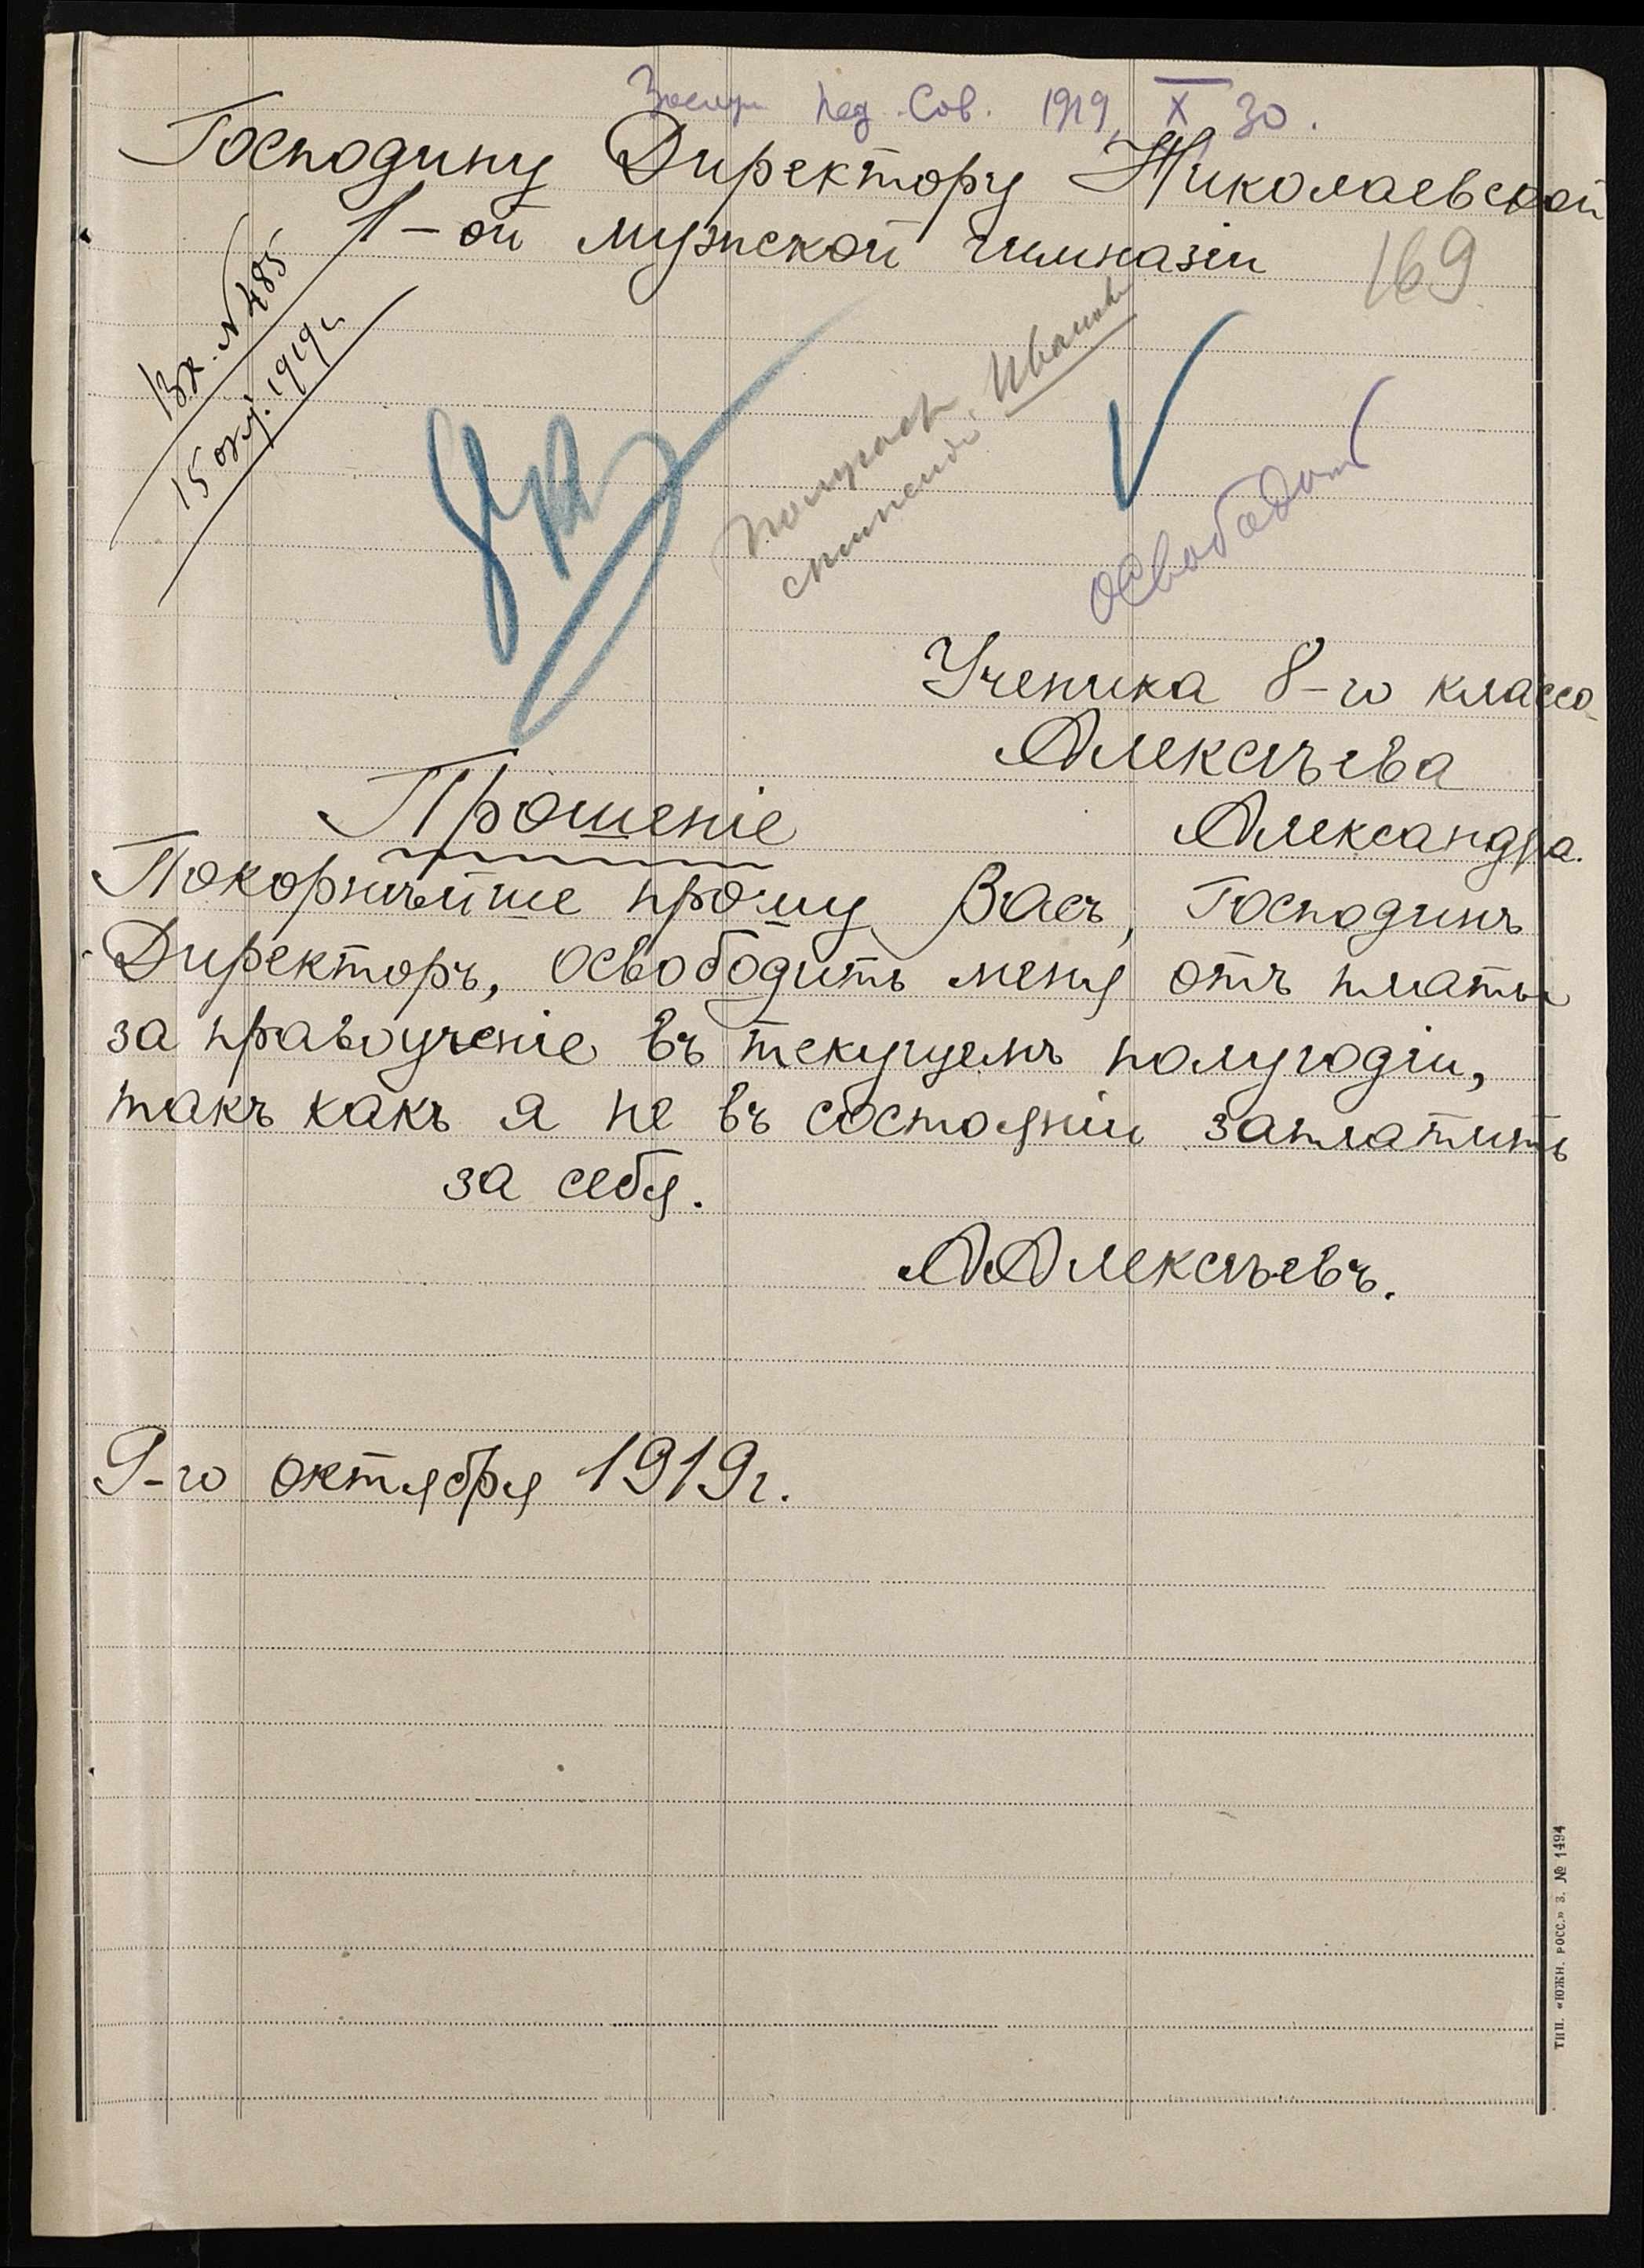 Пед. Сов. 1919, X 30.
Господину Директору Николаевской
1-ой мужской гимназіи
169
Вх. № 485
15 окт. 1919 г.
Получает
стипенд. Иванов
освободить
Ученика 8-го класса
Алексѣева
Александра.
Прошеніе
Покорнѣйше прошу Васъ, Господинъ
Директоръ, освободить меня отъ платы
за правоученіе въ текущемъ полугодіи,
такъ какъ я не въ состояніи заплатить
за себя.
А Алексѣевъ.
9-го октября 1919 г.
ТИП. «ЮЖН. РОСС.» З. № 1494